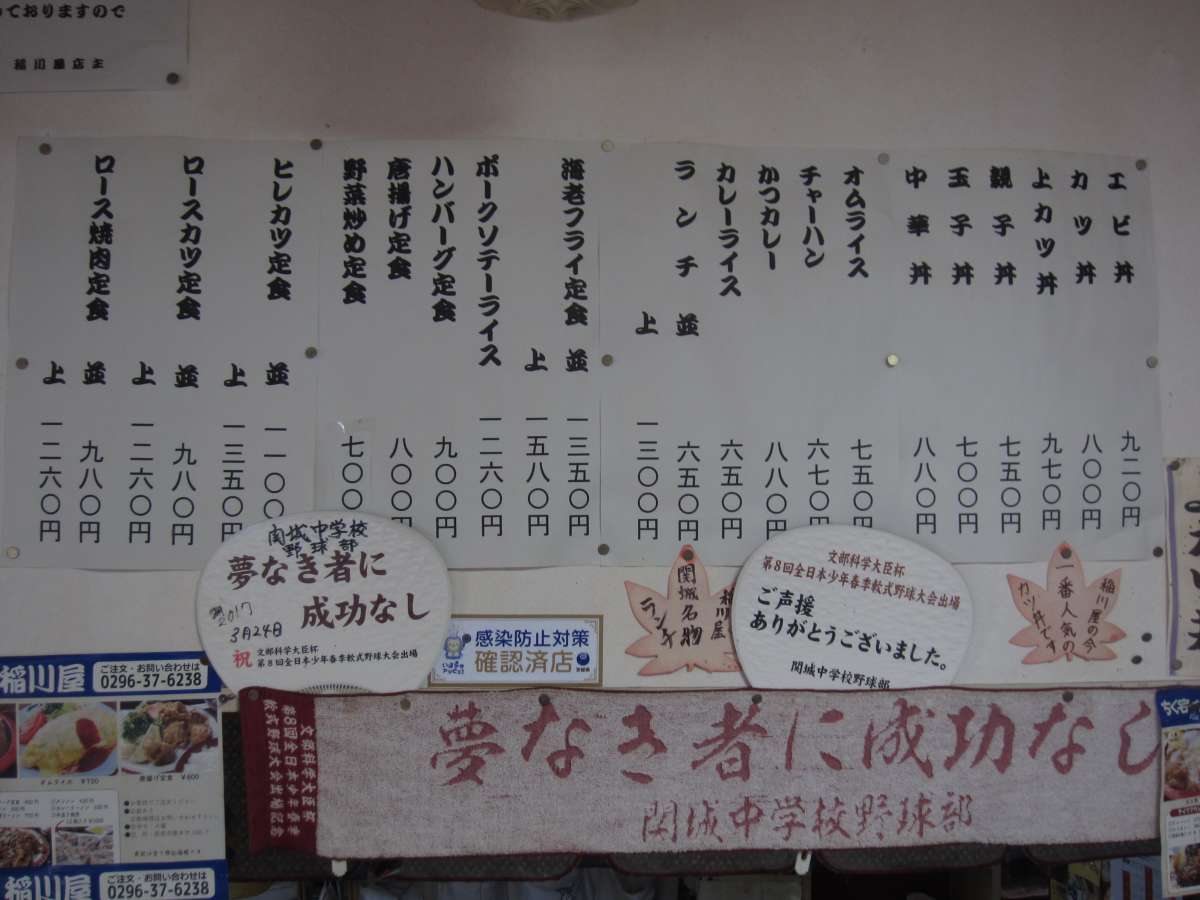 っておりますので
稲川屋店主
エビ丼 九二〇円
カツ丼 八〇〇円
上カツ丼 九七〇円
親子丼 七五〇円
玉子丼 七〇〇円
中華丼 八八〇円
オムライス 七五〇円
チャーハン 六七〇円
かつカレー 八八〇円
カレーライス 六五〇円
ランチ 並 六五〇円
上 一三〇〇円
海老フライ定食 並 一三五〇円
上 一五八〇円
ポークソテーライス 一二六〇円
ハンバーグ定食 九〇〇円
唐揚げ定食 八〇〇円
野菜炒め定食 七〇〇
ヒレカツ定食 並 一一〇〇
上 一三五〇円
ロースカツ定食 並 九八〇円
上 一二六〇円
ロース焼肉定食 並 九八〇円
上 一二六〇円
関城中学校
野球部
夢なき者に
成功なし
2017
3月24日
祝 文部科学大臣杯
第8回全日本少年春季軟式野球大会出場
感染防止対策
確認済店
稲川屋
関城名物
ランチ
文部科学大臣杯
第8回全日本少年春季軟式野球大会出場
ご声援
ありがとうございました。
関城中学校野球部
稲川屋の今
一番人気の
カツ丼です
夢なき者に成功なし
関城中学校野球部
文部科学大臣杯
第8回全日本少年春季
軟式野球大会出場記念
稲川屋
ご注文・お問い合わせは
0296-37-6238
オムライス ¥750
唐揚げ定食 ¥800
稲川屋
ご注文・お問い合わせは
0296-37-6238